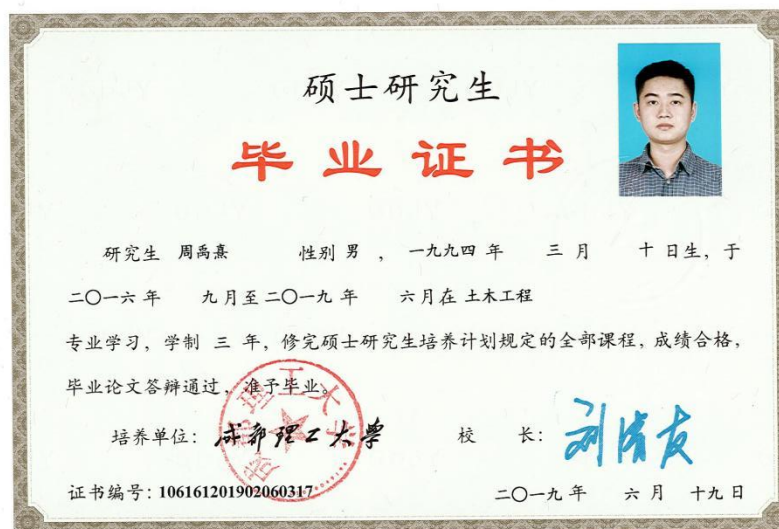 硕士研究生
毕业证书
研究生 周禹熹 性别 男 , 一九九四 年 三 月 十 日生, 于
二〇一六 年 九 月至 二〇一九 年 六 月在 土木工程
专业学习, 学制 三 年, 修完硕士研究生培养计划规定的全部课程, 成绩合格,
毕业论文答辩通过, 准予毕业。
培养单位: 成都理工大学 校 长: 刘清友
成都理工大学
证书编号: 106161201902060317 二〇一九 年 六 月 十九 日